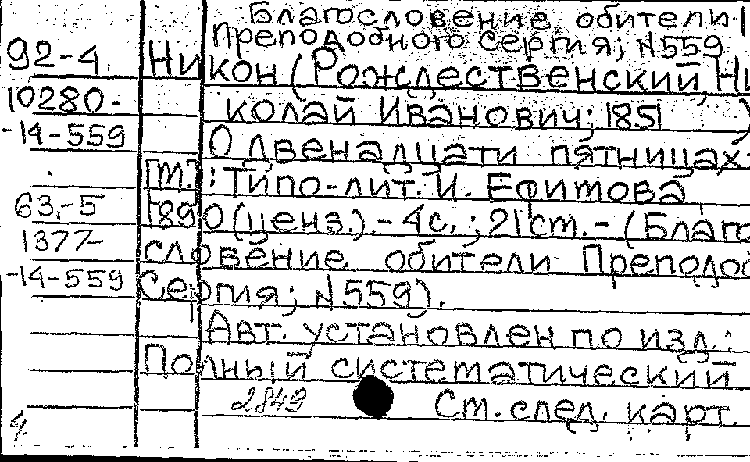 Благословение обители
Преподобного Сергия; N559
92-4 Никон (Рождественский Ни
10280- колай Иванович; 1851 )
-14-559 О двенадцати пятницах.
[М.]: Типо-лит. И. Ефимова,
63.-5 1890 (ценз.). - 4с.; 21 см. - (Благо
1377- словение обители Преподоб
-14-559 Сергия; N559).
Авт. установлен по изд.:
Полный систематический
2849 См. след. карт.